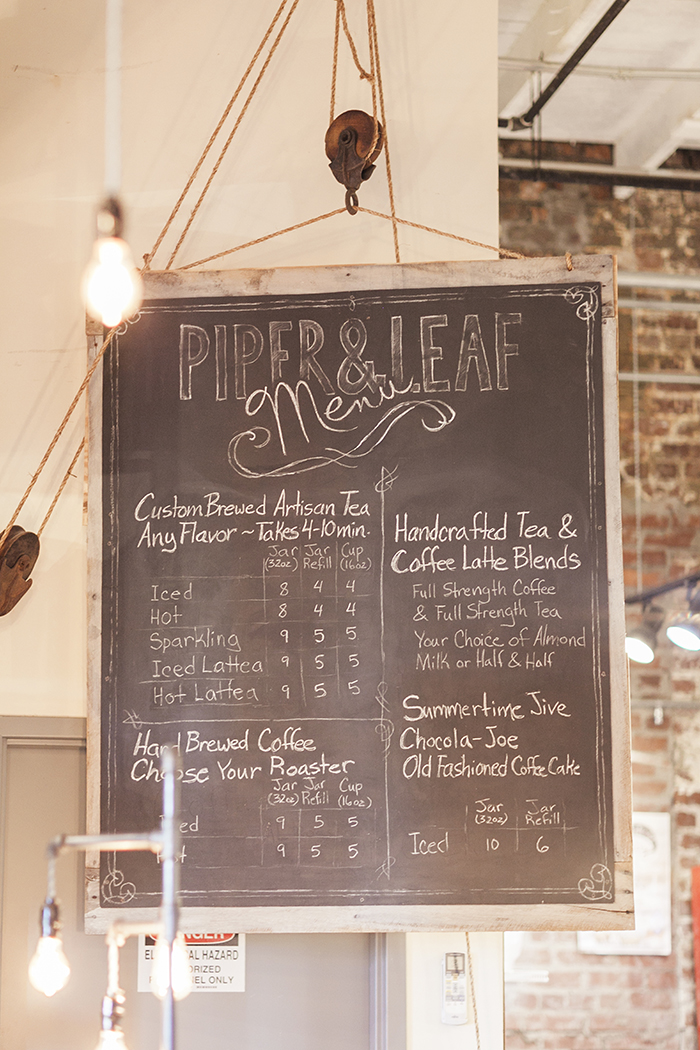 PIPER & LEAF
Menu
Custom Brewed Artisan Tea
Any Flavor ~ Takes 4-10 min.
Jar (32oz) Jar Refill Cup (16oz)
Iced 8 4 4
Hot 8 4 4
Sparkling 9 5 5
Iced Lattea 9 5 5
Hot Lattea 9 5 5
Hand Brewed Coffee
Choose Your Roaster
Jar (32oz) Jar Refill Cup (16oz)
Iced 9 5 5
Hot 9 5 5
Handcrafted Tea &
Coffee Latte Blends
Full Strength Coffee
& Full Strength Tea
Your Choice of Almond
Milk or Half & Half
Summertime Jive
Chocola-Joe
Old Fashioned Coffee Cake
Jar (32oz) Jar Refill
Iced 10 6
HAZARD
ONLY